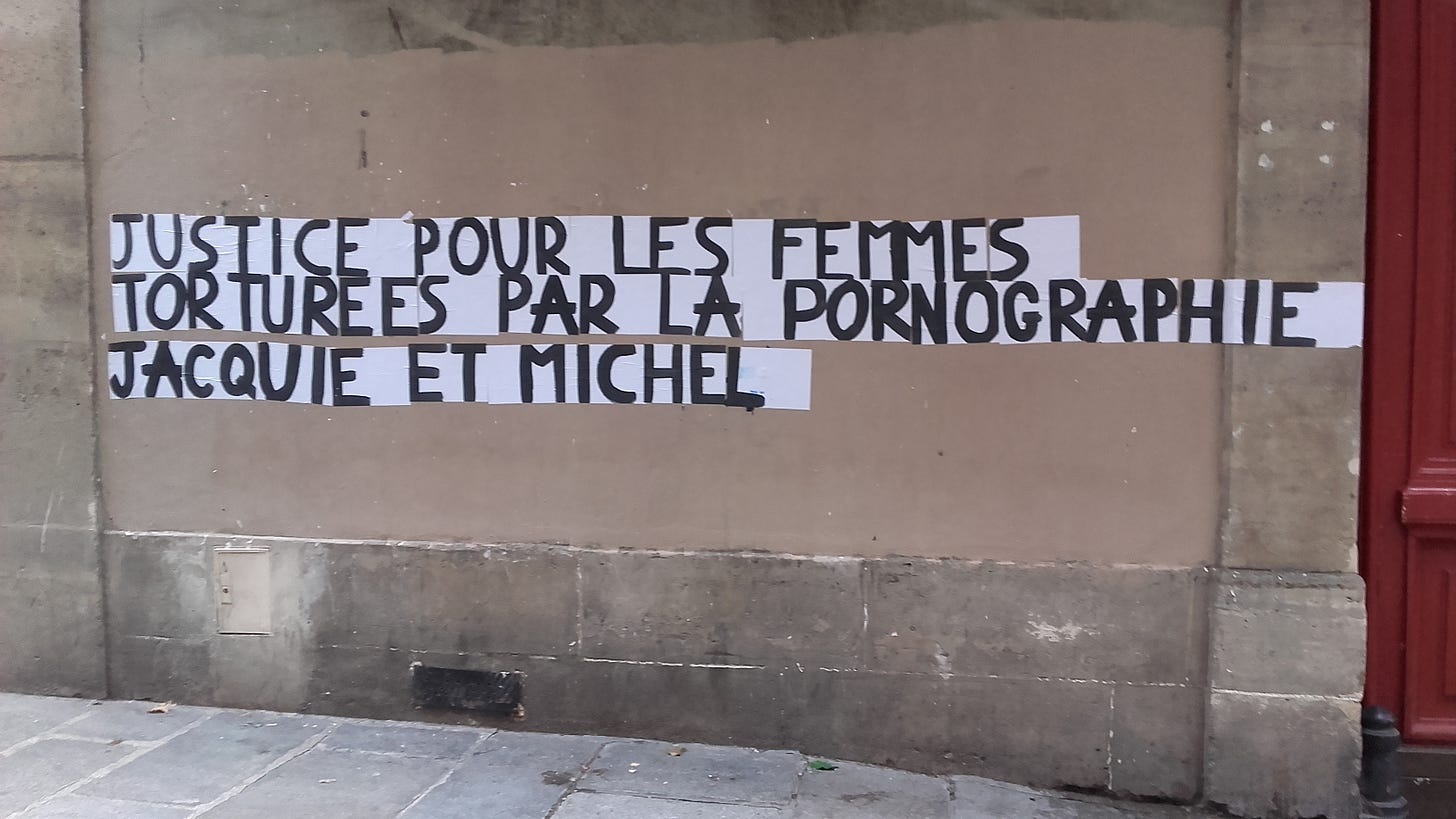 JUSTICE POUR LES FEMMES
TORTUREES PAR LA PORNOGRAPHIE
JACQUIE ET MICHEL